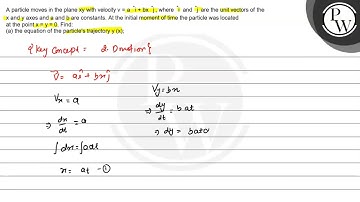 A particle moves in the plane xy with velocity v = a i + bx j, where i and j are the unit vectors of the
x and y axes and a and b are constants. At the initial moment of time the particle was located
at the point x = y = 0. Find:
(a) the equation of the particle's trajectory y (x);
PW
{Key Concept = 2 Dmotion{
v = aî + bxĵ
Vx = a
⇒ dx/dt = a
∫dx = ∫a dt
x = at -①
Vy = bx
⇒ dy/dt = b at
⇒ dy = bat dt